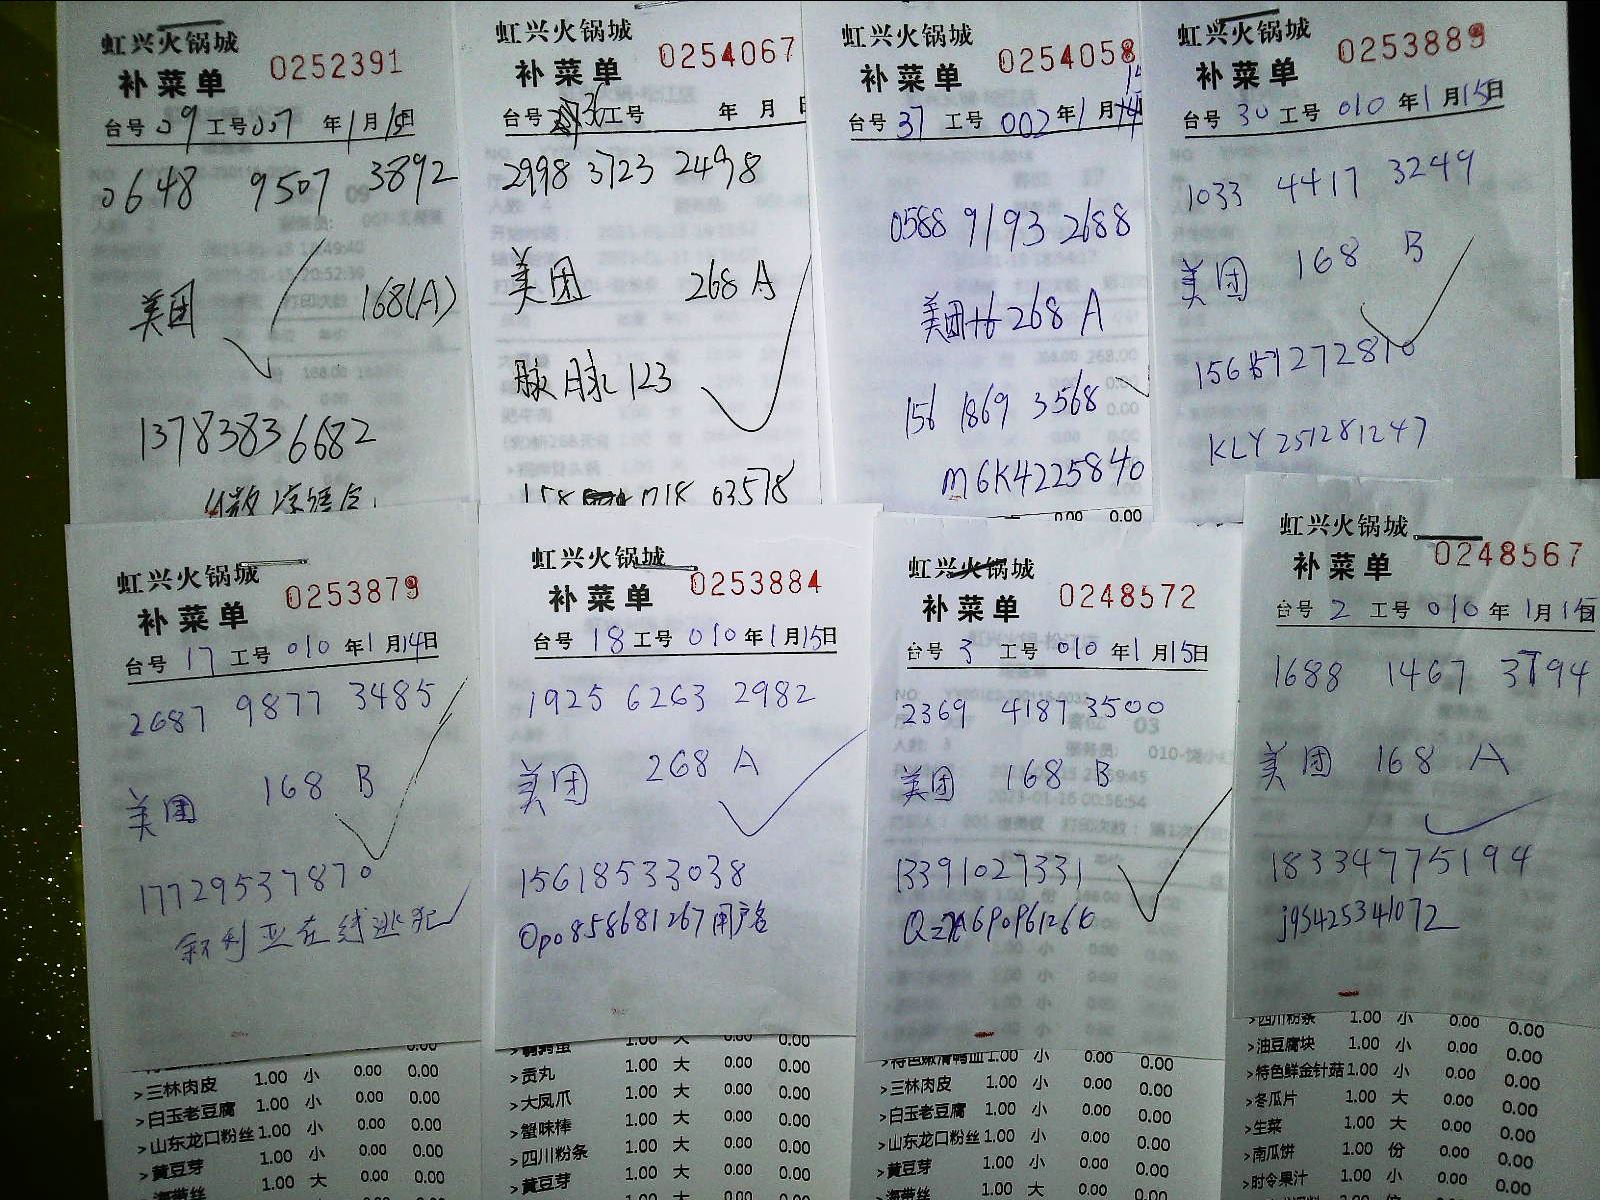 虹兴火锅城
补菜单 0252391
台号 09 工号 007 年 1 月 15 日
0648 9507 3892
美团 168(A)
13783836682
虹兴火锅城
补菜单 0254067
台号 36 工号 年 月 日
2998 3723 2498
美团 268 A
脉脉123
63578
虹兴火锅城
补菜单 0254058
台号 37 工号 002 年 1 月
0588 9193 2688
美团 268 A
156 1869 3568
M6K4225840
0.00 0.00
虹兴火锅城
补菜单 0253889
台号 30 工号 010 年 1 月 15 日
1033 4417 3249
美团 168 B
KLY251281247
虹兴火锅城
补菜单 0253879
台号 17 工号 010 年 1 月 14 日
2687 9877 3485
美团 168 B
17729537870
叙利亚在线逃犯
>三林肉皮 1.00 小 0.00 0.00
>白玉老豆腐 1.00 小 0.00 0.00
>山东龙口粉丝 1.00 小 0.00 0.00
>黄豆芽 1.00 小 0.00 0.00
海带丝 1.00 大 0.00 0.00
虹兴火锅城
补菜单 0253884
台号 18 工号 010 年 1 月 15 日
1925 6263 2982
美团 268 A
15618533038
Opo858681267用户名
1.00 大 0.00 0.00
>贡丸 1.00 大 0.00 0.00
>大凤爪 1.00 大 0.00 0.00
>蟹味棒 1.00 大 0.00 0.00
>四川粉条 1.00 大 0.00 0.00
>黄豆芽 1.00 大 0.00 0.00
虹兴火锅城
补菜单 0248572
台号 3 工号 010 年 1 月 15 日
2369 4187 3500
美团 168 B
13391027331
>特色嫩滑鸭血 1.00 小 0.00 0.00
>三林肉皮 1.00 小 0.00 0.00
>白玉老豆腐 1.00 小 0.00 0.00
>山东龙口粉丝 1.00 小 0.00 0.00
>黄豆芽 1.00 小 0.00 0.00
海带丝 1.00 大 0.00 0.00
虹兴火锅城
补菜单 0248567
台号 2 工号 010 年 1 月 15 日
1688 1467 3794
美团 168 A
18334775194
j95425341072
>四川粉条 1.00 小 0.00 0.00
>油豆腐块 1.00 小 0.00 0.00
>特色鲜金针菇 1.00 小 0.00 0.00
>冬瓜片 1.00 大 0.00 0.00
>生菜 1.00 大 0.00 0.00
>南瓜饼 1.00 份 0.00 0.00
>时令果汁 1.00 小 0.00 0.00